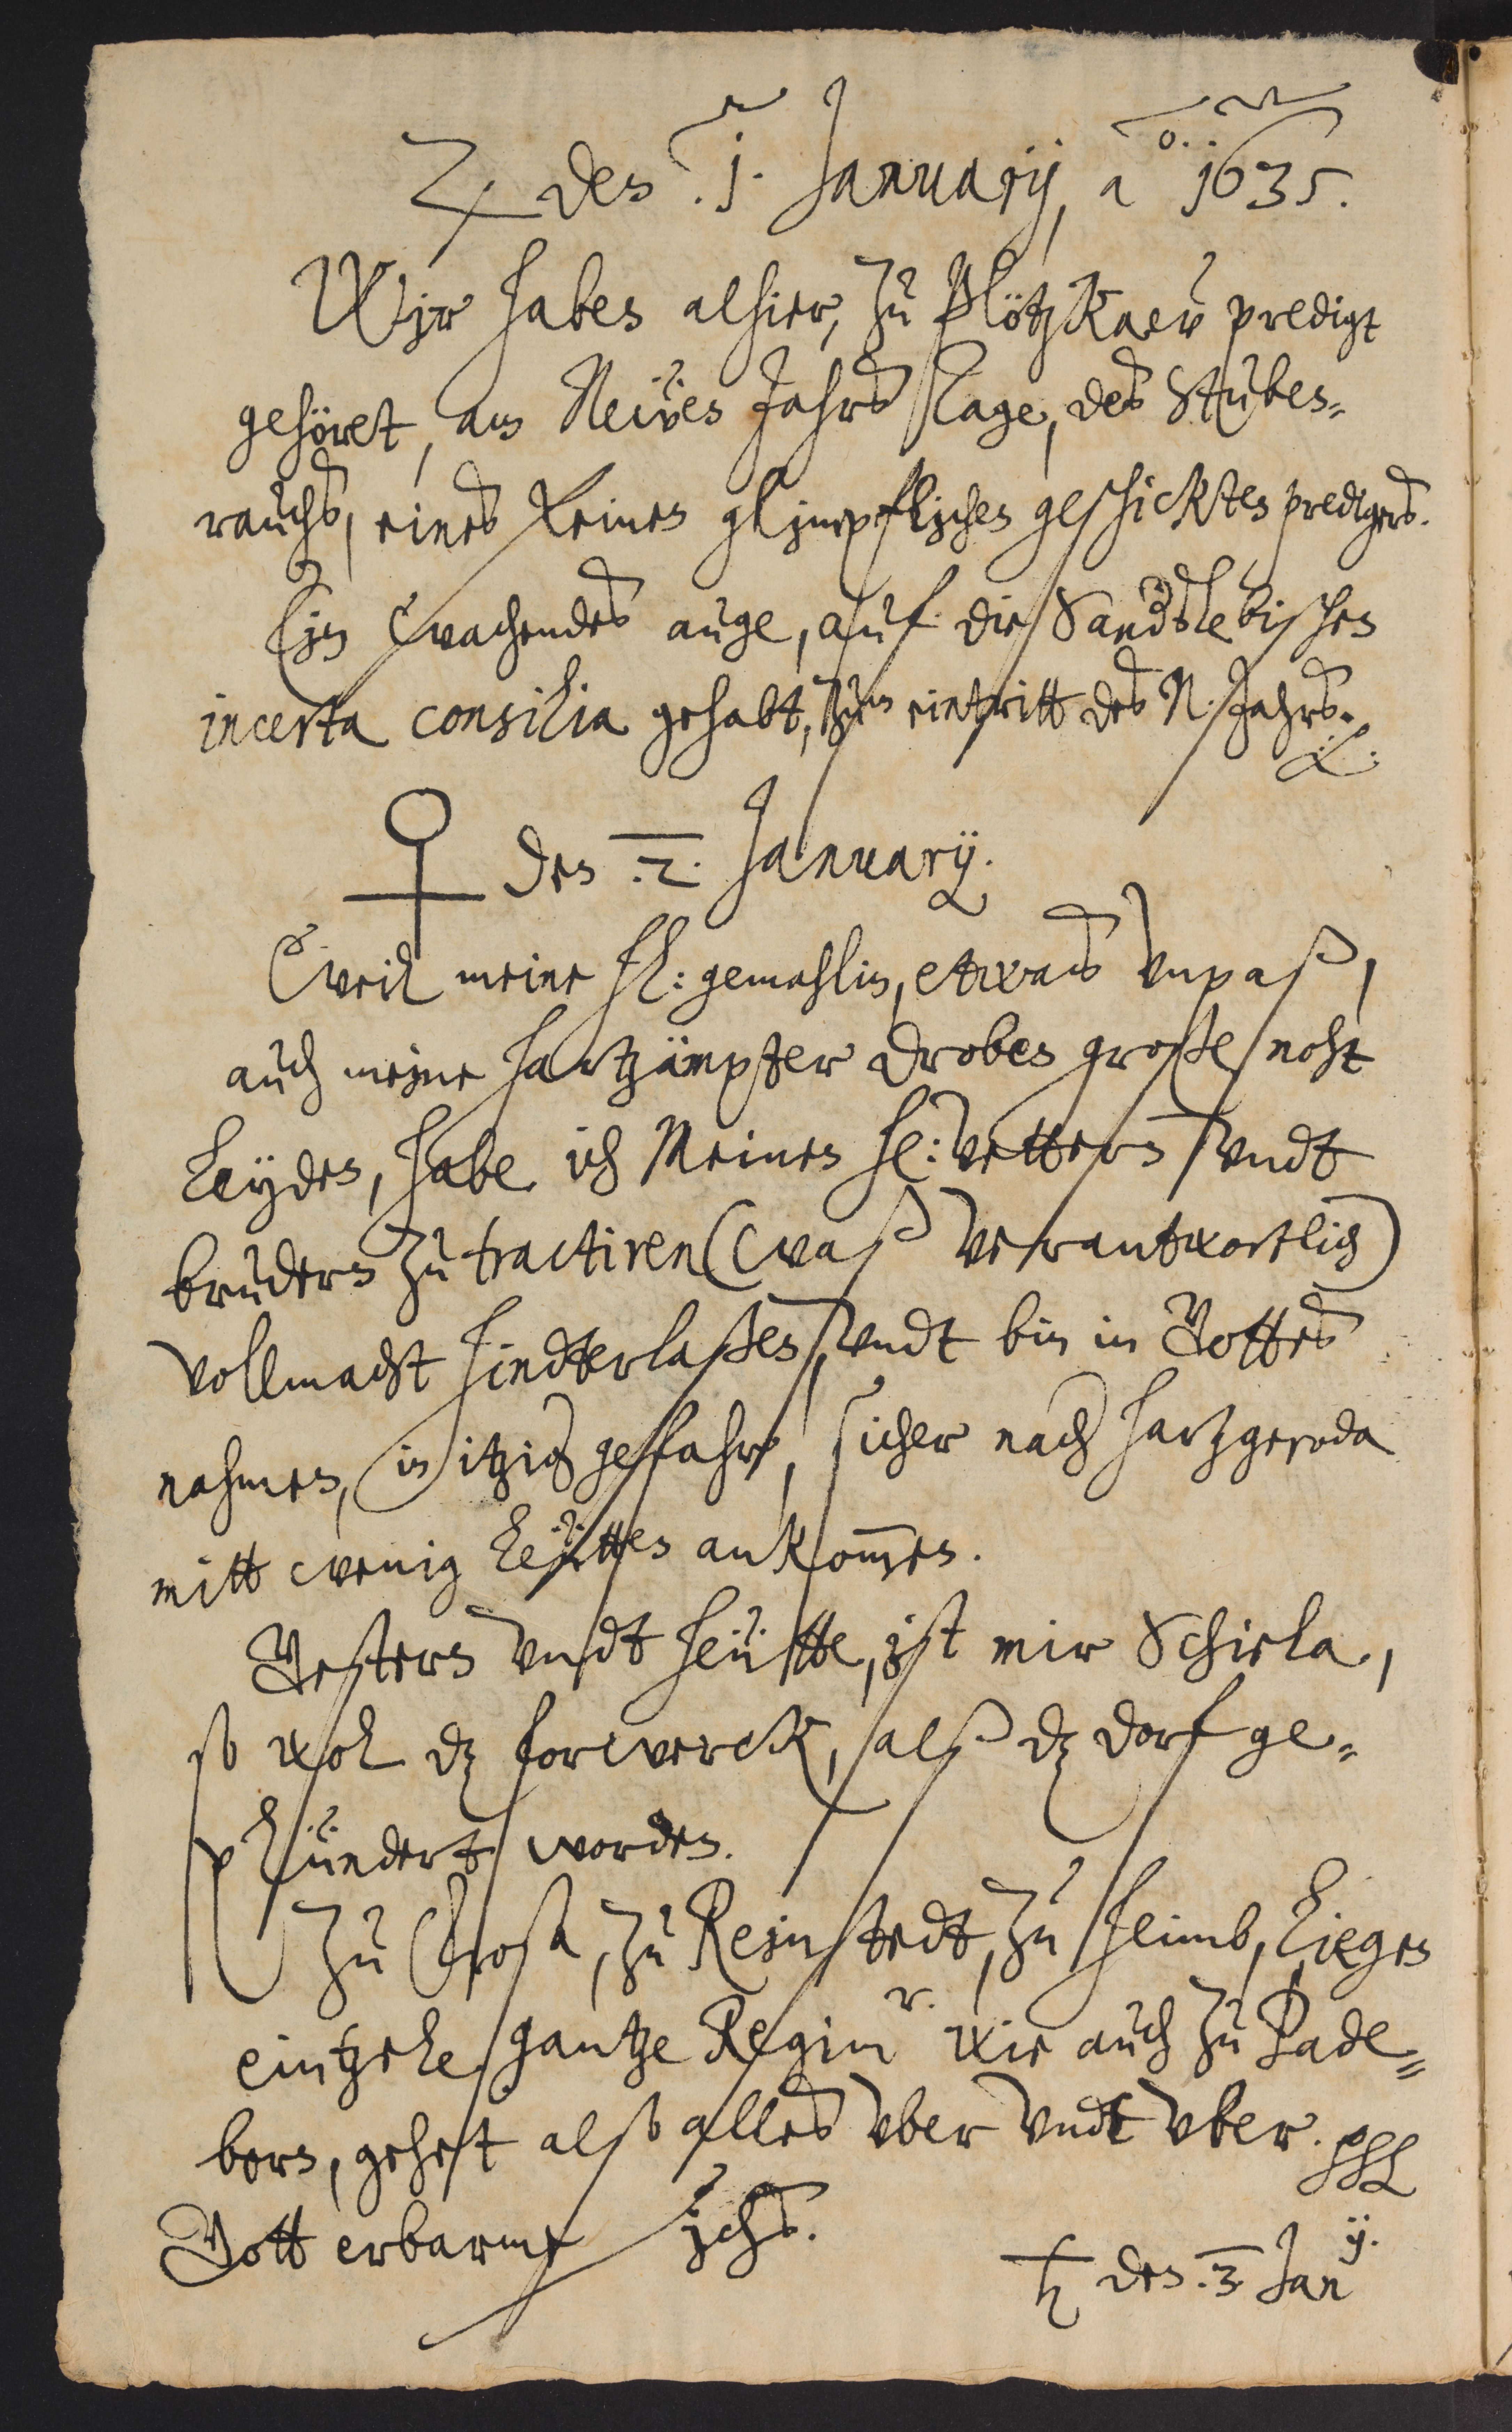 ♃ den .1. Januarij, a͞o. 1635.
Wir haben alhier, zu Plötzkaw predigt
gehöret, am Newen Jahrs Tage, des Stuben-
rauchs, eines feinen glimpflichen geschickten predigers.
Ein wachendes auge, auf die Sanderslebischen
incerta consilia gehabt, zum eintritt des N. Jahrs.
♀ den .2. Januarij.
Weil meine h: gemahlin, etwas vnpaß,
auch meine hartzämpter droben große noht
leyden, habe ich Meinen h: Vettern vndt
brudern zu tractiren (waß verantwortlich)
vollmacht hindterlaßen, vndt bin in Gottes
nahmen, in itzig gefahr, sicher nach Hartzgeroda
mitt wenig leütten ankommen.
Gestern vndt heütte, ist mir Schiela,
so wol dz forwerck, alß dz dorf ge-
plündert worden.
Zu Frosa, zu Reinstedt, zu Heimb, liegen
eintzele gantze Regim.r wie auch zu Bade-
born, gehett also alles vber vndt vber.
Gott erbarme sichs.
♄ den .3. Jan ij.